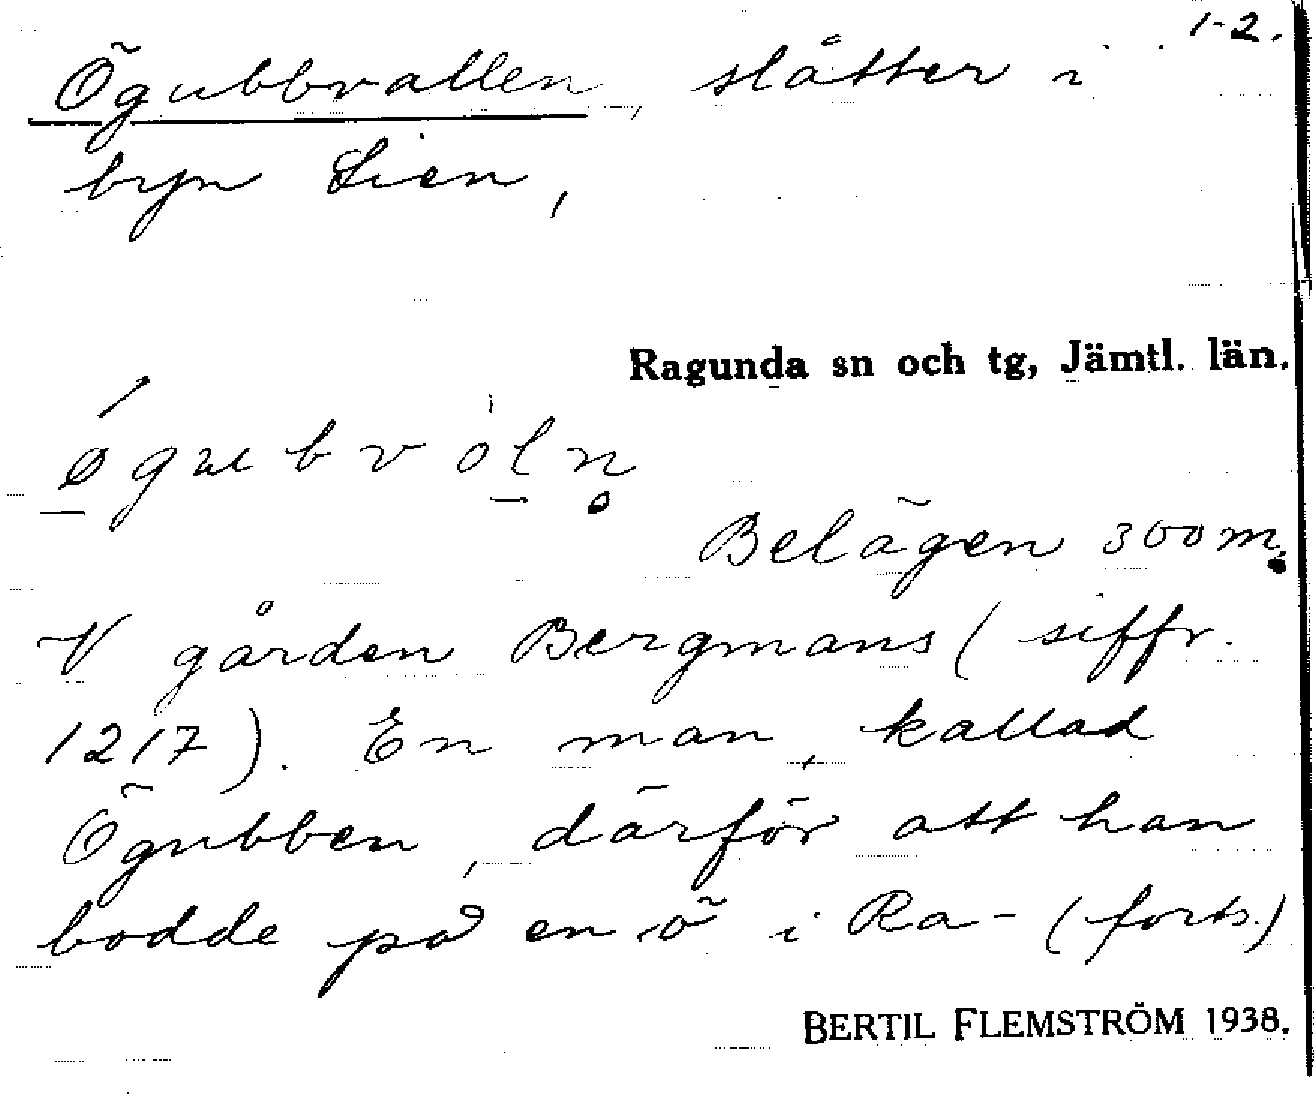 1-2.
Ögubbvallen, slåtter i
byn Lien,
Ragunda sn och tg, Jämtl. län.
ǿgubvòln̥
Belägen 300 m.
V gården Bergmans (siffr.
1217). En man, kallad
Ögubben, därför att han
bodde på en ö i Ra- (forts.)
BERTIL FLEMSTRÖM 1938.